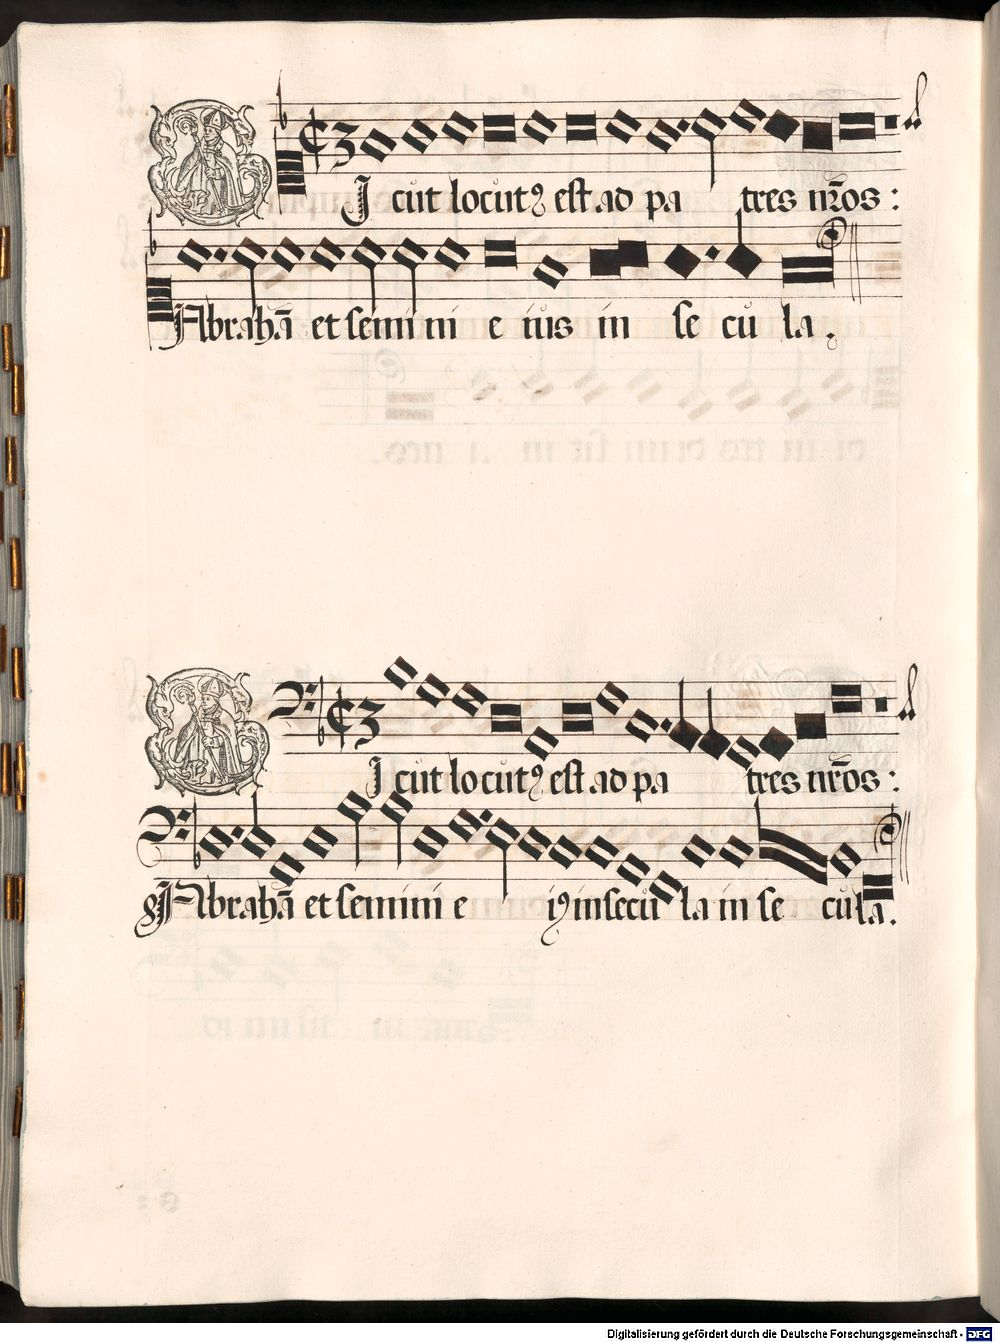 SIcut locutꝰ est ad pa tres nr̃os :
Abrahã et semini e ius in se cu la.
SIcut locutꝰ est ad pa tres nr̃os :
Abrahã et semini e iꝰ in secu la in se cula.
Digitalisierung gefördert durch die Deutsche Forschungsgemeinschaft - DFG